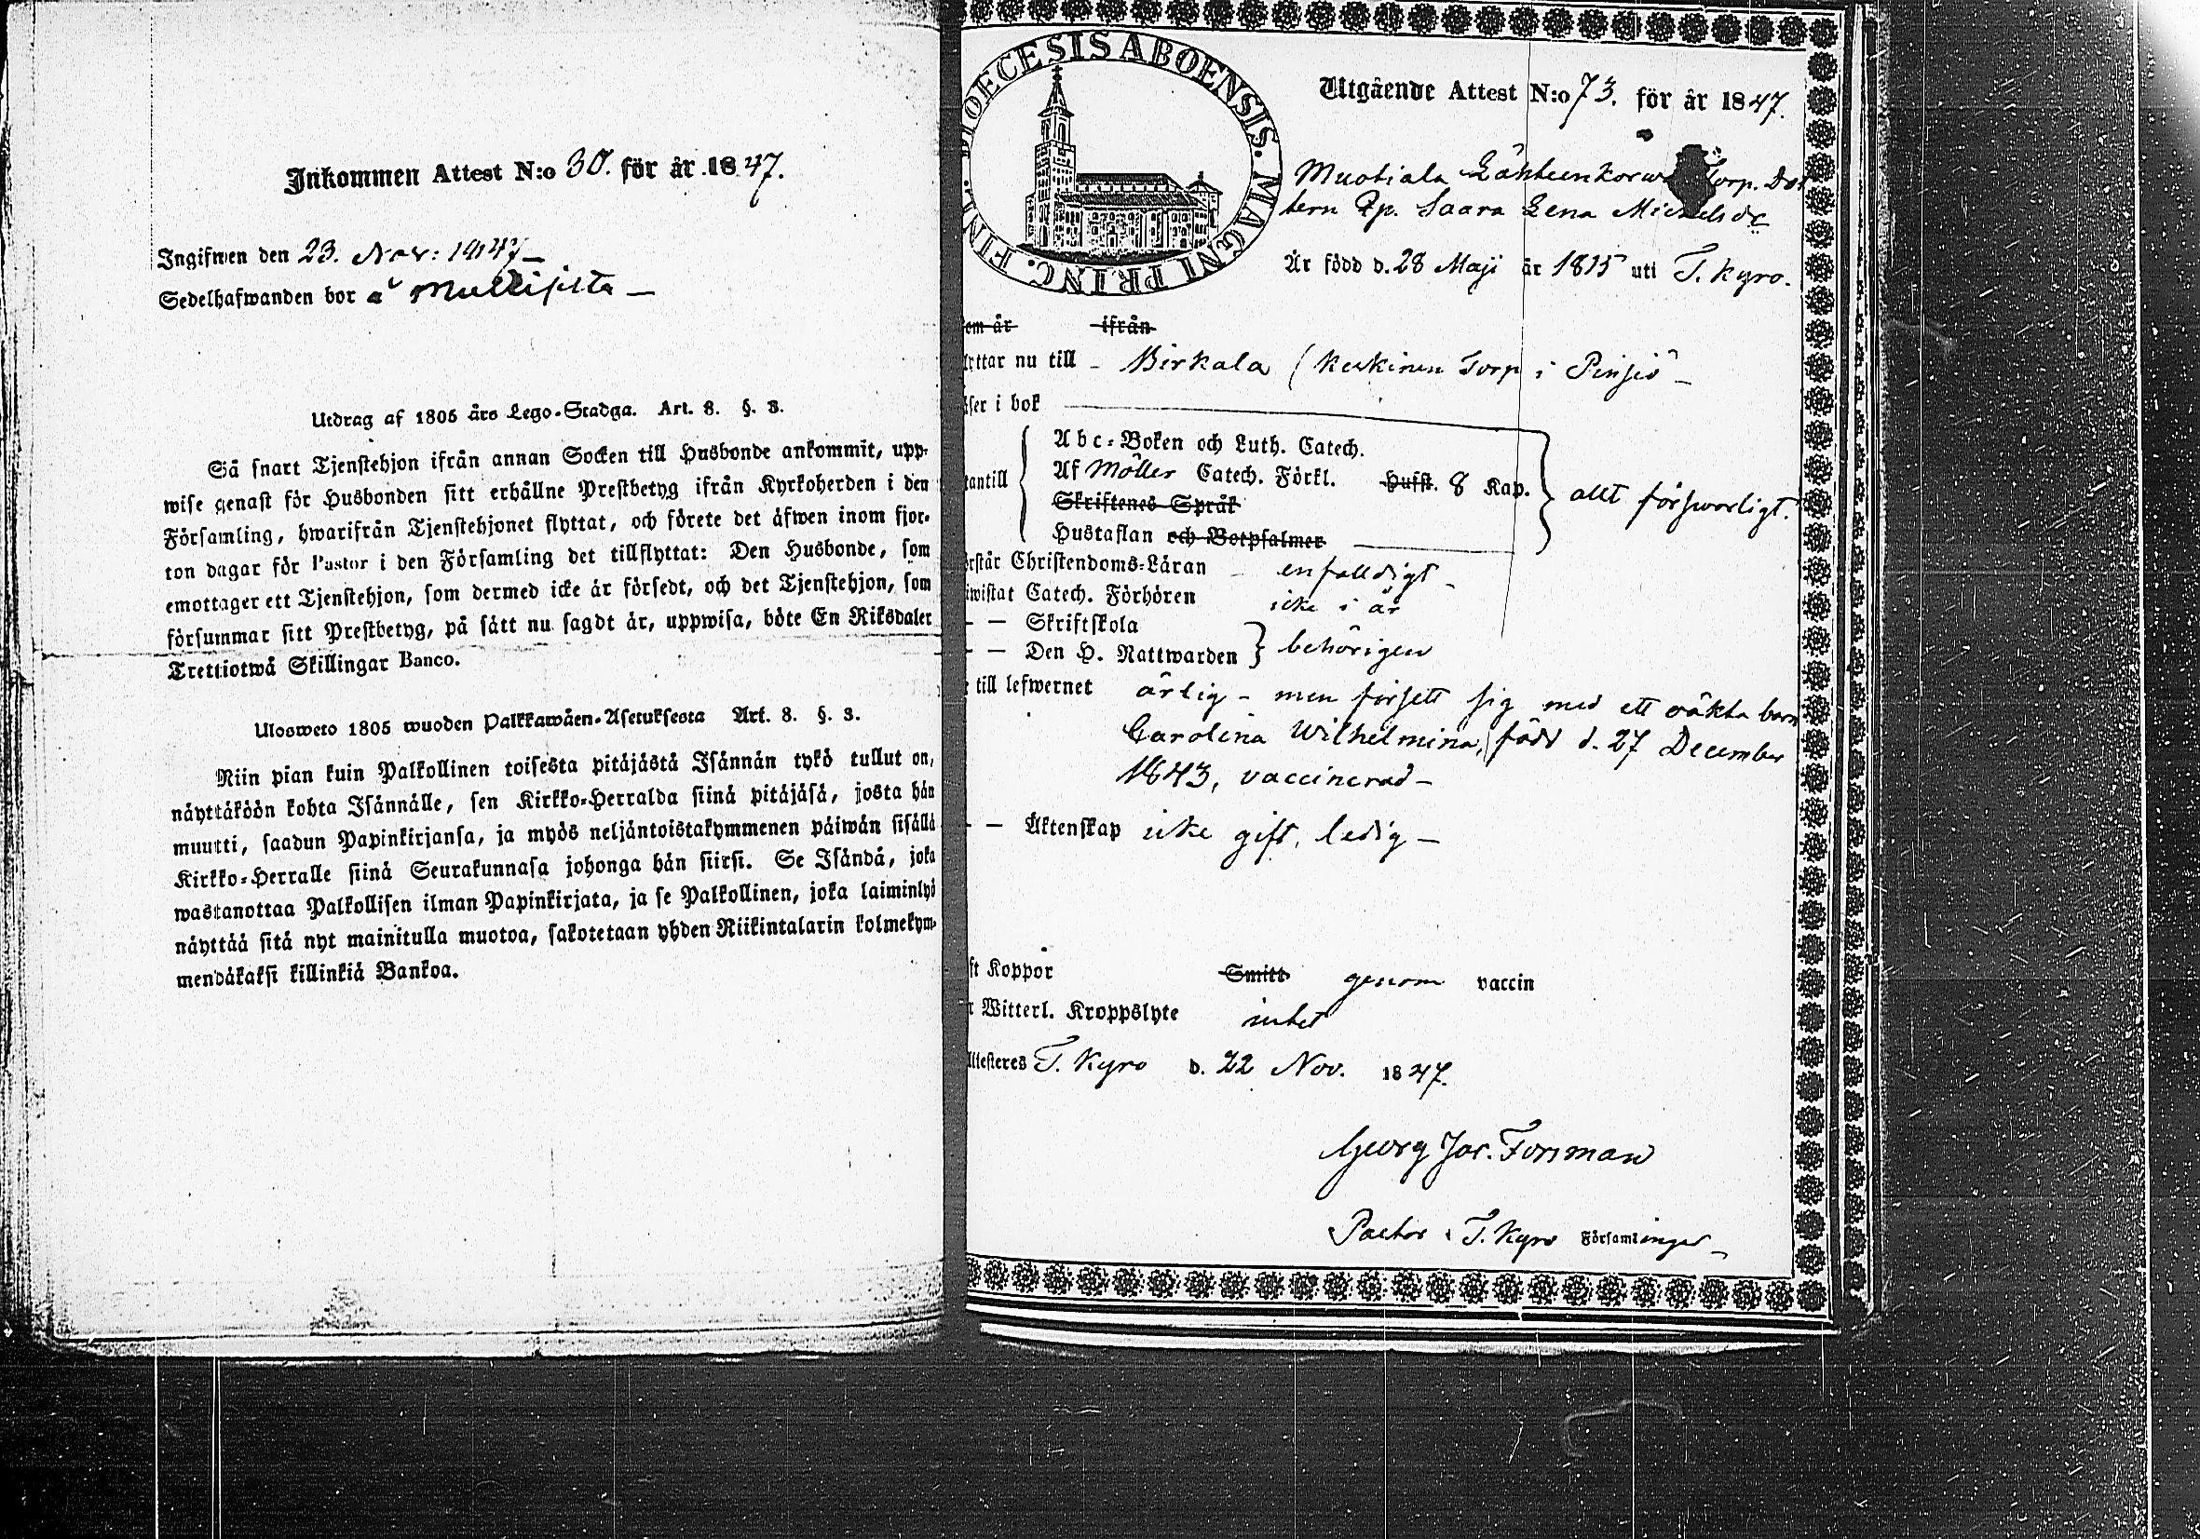 Inkommen Attest N:o 30. för år 1847.
Ingifwen den 23. Nov: 1847
Sedelhafwanden bor å
Utdrag af 1805 års Lego-Stadga. Art. 8. §. 3.
Så snart Tjenstehjon ifrån annan Socken till Husbonde ankommit, upp-
wise genast för Husbonden sitt erhållne Prestbetyg ifrån Kyrkoherden i den
Församling, hwarifrån Tjenstehjonet flyttat, och förete det äfwen inom fjor-
ton dagar för Pastor i den Församling det tillflyttat: Den Husbonde, som
emottager ett Tjenstehjon, som dermed icke är försedt, och det Tjenstehjon, som
försummar sitt Prestbetyg, på sätt nu sagdt är, uppwisa, böte En Riksdaler
Trettiotwå Skillingar Banco.
Ulosweto 1805 wuoden Palkkawäen-Asetuksesta Art. 8. §. 3.
Niin pian kuin Palkollinen toisesta pitäjästä Isännän tykö tullut on,
näyttäköön kohta Isännälle, sen Kirkko-Herralda siinä pitäjäsä, josta hän
muutti, saadun Papinkirjansa, ja myös neljäntoistakymmenen päiwän sisällä
Kirkko-Herralle siinä Seurakunnasa johonga hän siirsi. Se Isändä, joka
wastanottaa Palkollisen ilman Papinkirjata, ja se Palkollinen, joka laiminlyö
näyttää sitä nyt mainitulla muotoa, sakotetaan yhden Riikintalarin kolmekym-
mendäkaksi killinkiä Bankoa.
DIOECESIS ABOENSIS. MAGNI PRINC. FINL.
Utgående Attest N:o 73. för år 1847.
Muotiala Torp. Dot
tern Saara Lena
Är född d. 28 Maji år 1815 uti T. Kyro.
em år ifrån
lyttar nu till - Birkala ( Keskinen Torp i
äser i bok
tantill
Abc-Boken och Luth. Catech.
Af Möller Catech. Förkl. Hufst. 8 Kap.
Skriftenes Språk
Hustaflan och Botpsalmer
allt försvarligt.
örstår Christendoms-Läran - enfalldigt -
iwistat Catech. Förhören icke i år
- - Skriftskola
- - Den H. Nattwarden behörigen
till lefwernet ärlig - men försett sig med ett oäkta barn
Carolina Wilhelmina, född d. 27 December
1843, vaccinerad -
- - Äktenskap icke gift, ledig -
ft Koppor Smitt genom vaccin
r Witterl. Kroppslyte intet
ttesteres T. Kyro d. 22 Nov. 1847.
Georg Jac. Forsman
Pastor i T. Kyro Församlinger